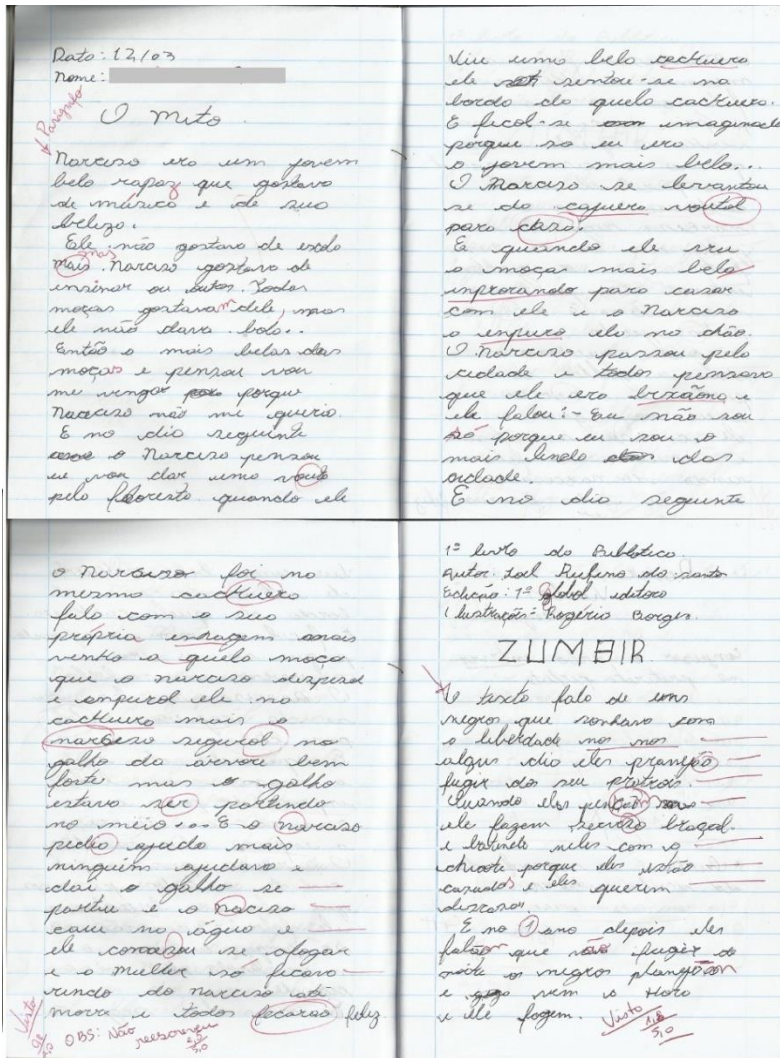 Data: 12/03
Nome:
Parágrafo
O Mito.
Narciso era um jovem
belo rapaz que gostava
de música e de sua
beleza.
Ele não gostava de
mais. mas Narciso gostava de
ensinar ou outos. Todas
moças gostavam dele, mas
ele não dava bola..
Então a mais belas das
moças e pensou vou
me vingar porque
Narciso não me queria.
E no dia seguinte
o Narciso pensou
eu vou dar uma
pela floresta. quando ele
Viu uma bela cachuera
ele sentou-se na
borda da quela cachuera.
E ficol-se imaginado
porque so eu ero
o jovem mais belo...
O Narciso se levantou
se da cajuera voutol
para casa.
E quando ele
a moça mais bela
inprorando para casar
com ele e o Narciso
a enpuro ela no chão.
O Narciso passou pela
cidade e todos pensava
que ele era bixãona e
ele falou: - Eu não sou
só porque eu sou o
mais lindo das
cidade.
E no dia seguinte
o Narciso foi na
mesma cachuera
fala com a sua
própria enmagem mais
venho a quela moça
que o narciso
e enpurol ele na
cachuera mais o
narciso segurol no
galho da árvore bem
forte mas o galho
estava ser partindo
no meio... E o Narciso
pedio ajuda mais
ninguém ajudava e
dai o galho se
partiu e o naciso
caiu na água e
ele comesou se afogar
e a mulher só ficava
rindo do narciso até
morre e todos fecarao feliz
Visto
OBS: Não reescreveu
5,0
1º livro da Biblioteca
Autor: Joel Rufino do santo
Edição: 1ª global editora
Ilustrações: Rogério Borges.
ZUMBIR
O texto fala de uns
negros que sonhava com
a liberdade nos nos
algus dia eles pranejão
fugir do seu
Quando eles
ele fazem braçal
e batendo neles com o
chicote porque eles estão
cansados e eles querem
E no 1 ano depois eles
falaon que não fugir de
noite os negros planejaon
e vem a Hora
e ele fogem.
Visto
1,8
5,0